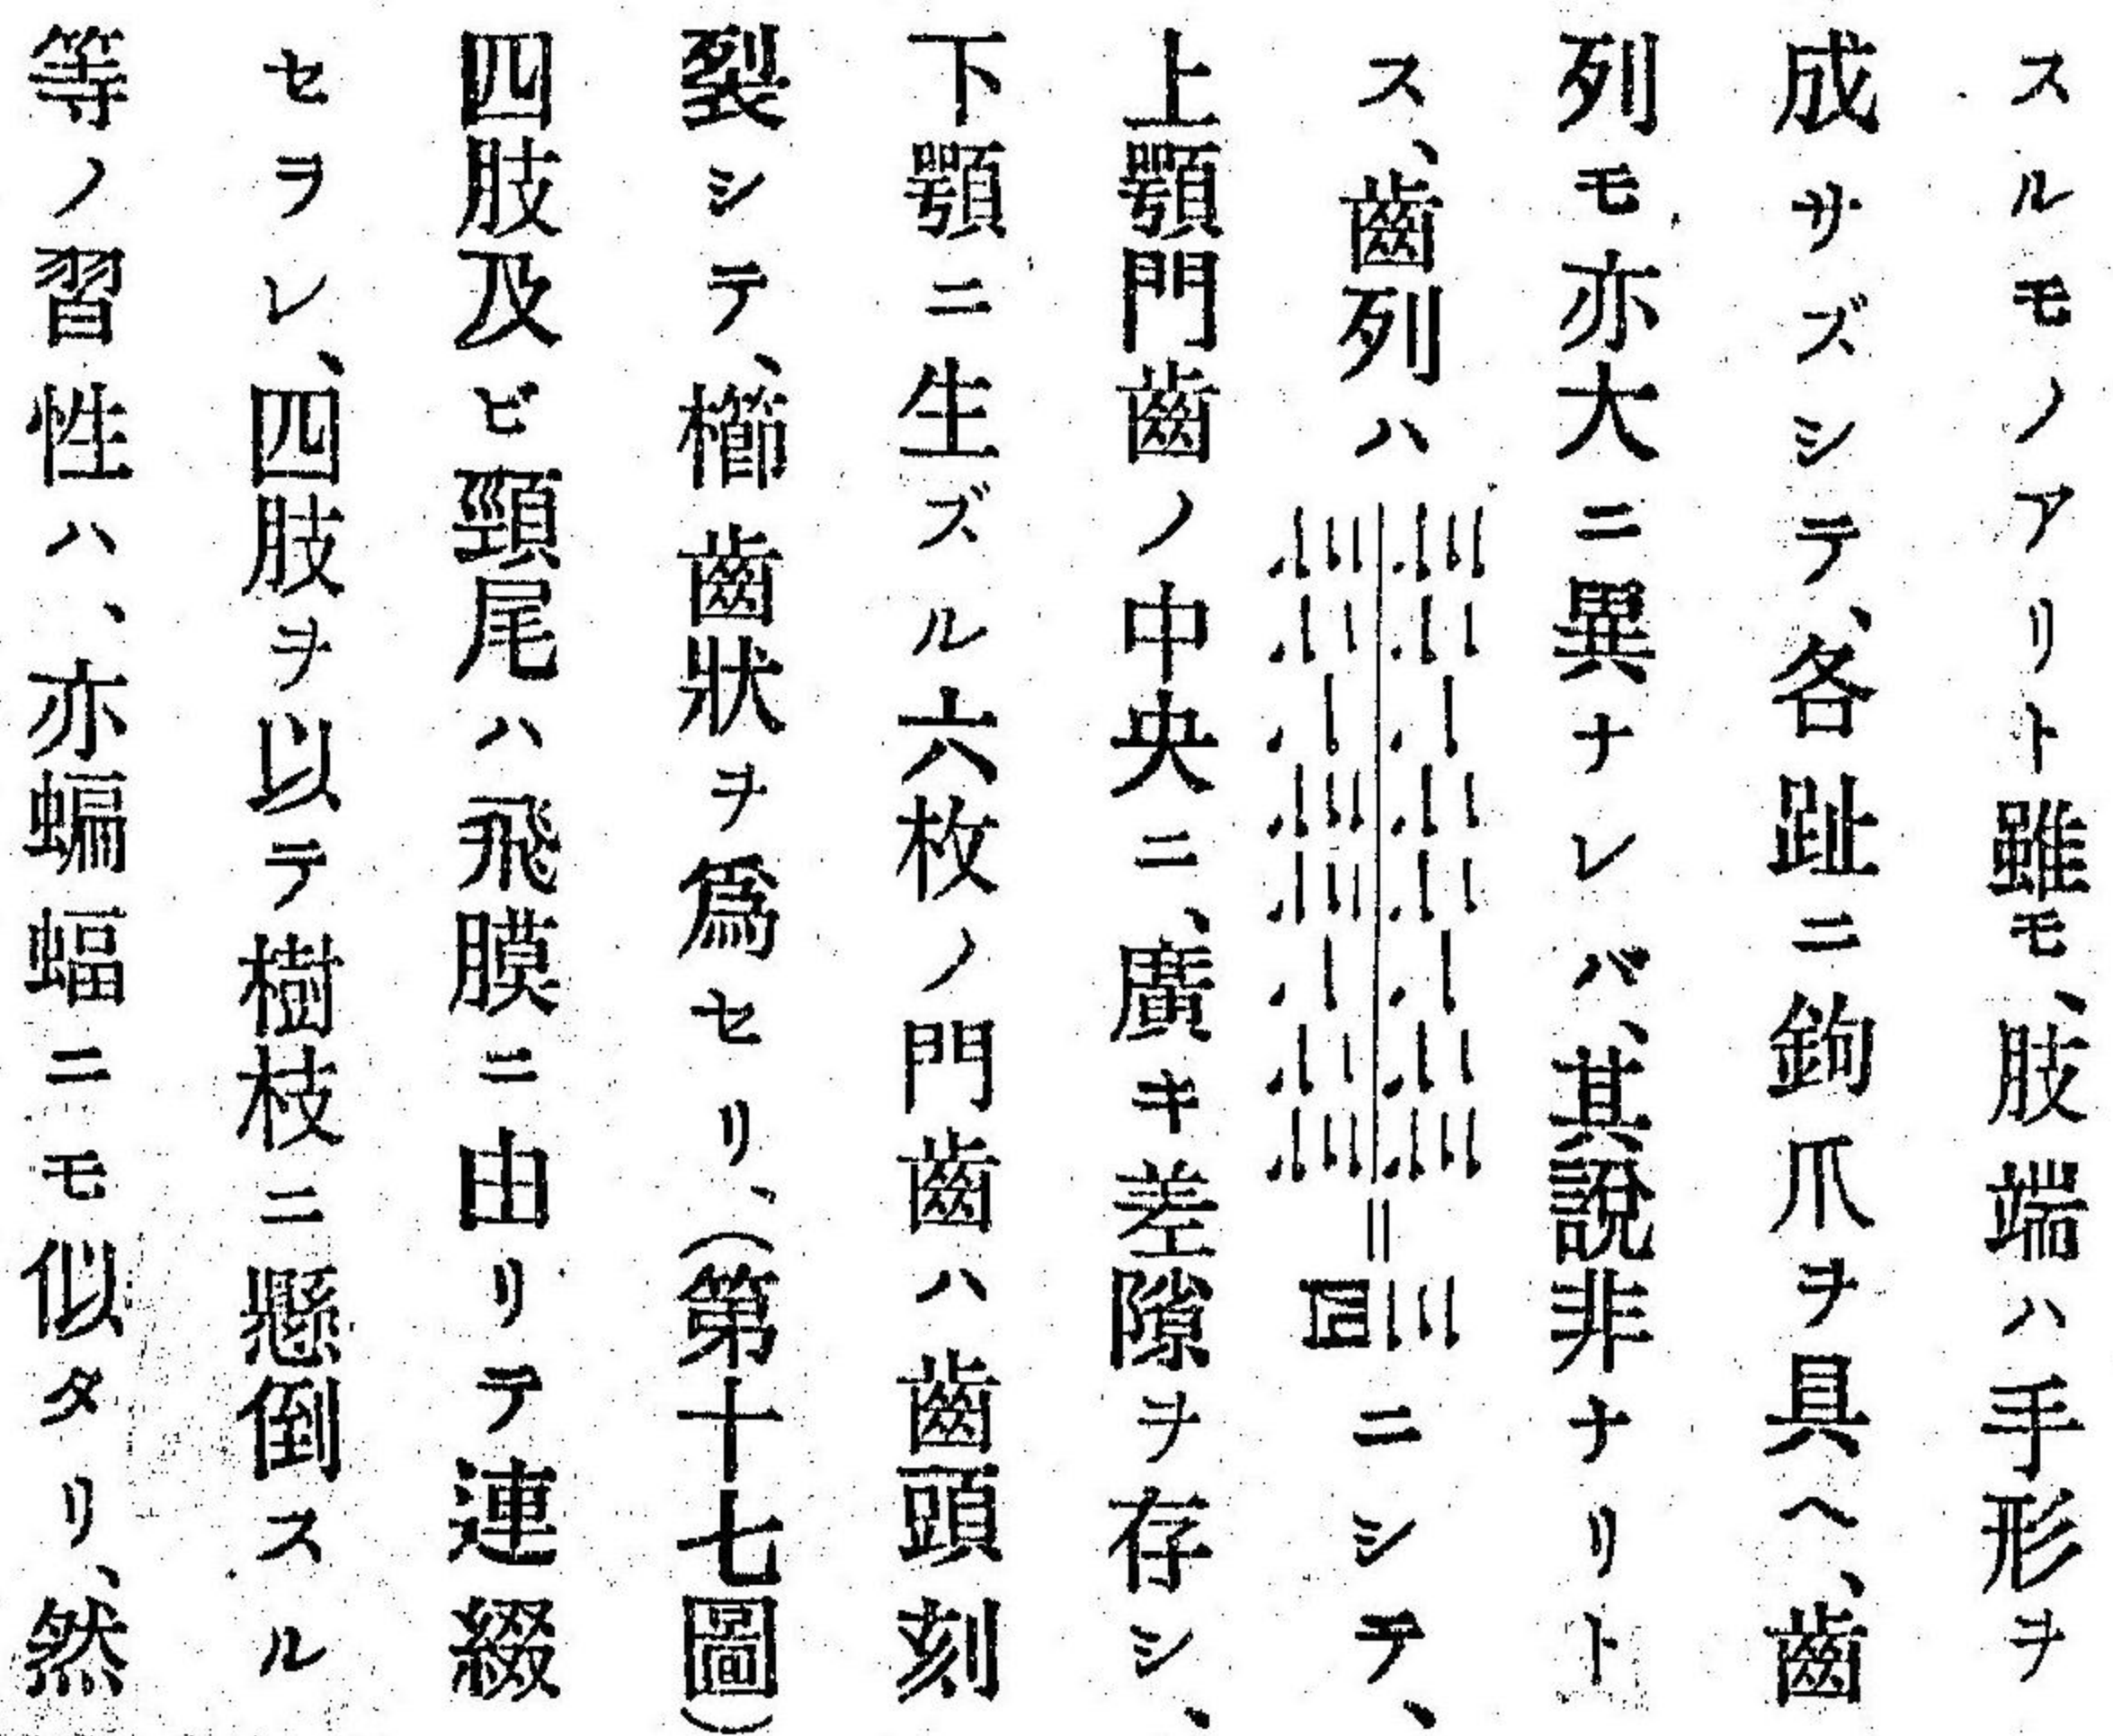 スルモノアリト雖モ、肢端ハ手形ヲ
成サズシテ、各趾ニ鉤爪ヲ具ヘ、齒
列モ亦大ニ異ナレバ、其說非ナリト
ス、齒列ハ ニシテ、
上顎門齒ノ中央ニ、廣キ差隙ヲ存シ、
下顎ニ生ズル六枚ノ門齒ハ齒頭刻
裂シテ、櫛齒狀ヲ爲セリ、(第十七圖)
四肢及ビ頸尾ハ飛膜ニ由リテ連綴
セヲレ、四肢ヲ以テ樹枝ニ懸倒スル
等ノ習性ハ、亦蝙蝠ニモ似タリ、然